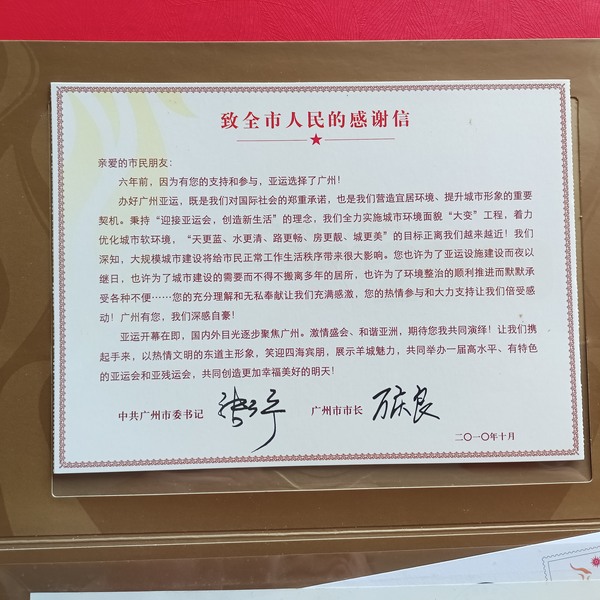 致全市人民的感谢信
亲爱的市民朋友：
六年前，因为有您的支持和参与，亚运选择了广州！
办好广州亚运，既是我们对国际社会的郑重承诺，也是我们营造宜居环境、提升城市形象的重要
契机。秉持“迎接亚运会，创造新生活”的理念，我们全力实施城市环境面貌“大变”工程，着力
优化城市软环境，“天更蓝、水更清、路更畅、房更靓、城更美”的目标正离我们越来越近！我们
深知，大规模城市建设将给市民正常工作生活秩序带来很大影响。您也许为了亚运设施建设而夜以
继日，也许为了城市建设的需要而不得不搬离多年的居所，也许为了环境整治的顺利推进而默默承
受各种不便……您的充分理解和无私奉献让我们充满感激，您的热情参与和大力支持让我们倍受感
动！广州有您，我们深感自豪！
亚运开幕在即，国内外目光逐步聚焦广州。激情盛会、和谐亚洲，期待您我共同演绎！让我们携
起手来，以热情文明的东道主形象，笑迎四海宾朋，展示羊城魅力，共同举办一届高水平、有特色
的亚运会和亚残运会，共同创造更加幸福美好的明天！
中共广州市委书记 张广宁 广州市市长 万庆良
二〇一〇年十月